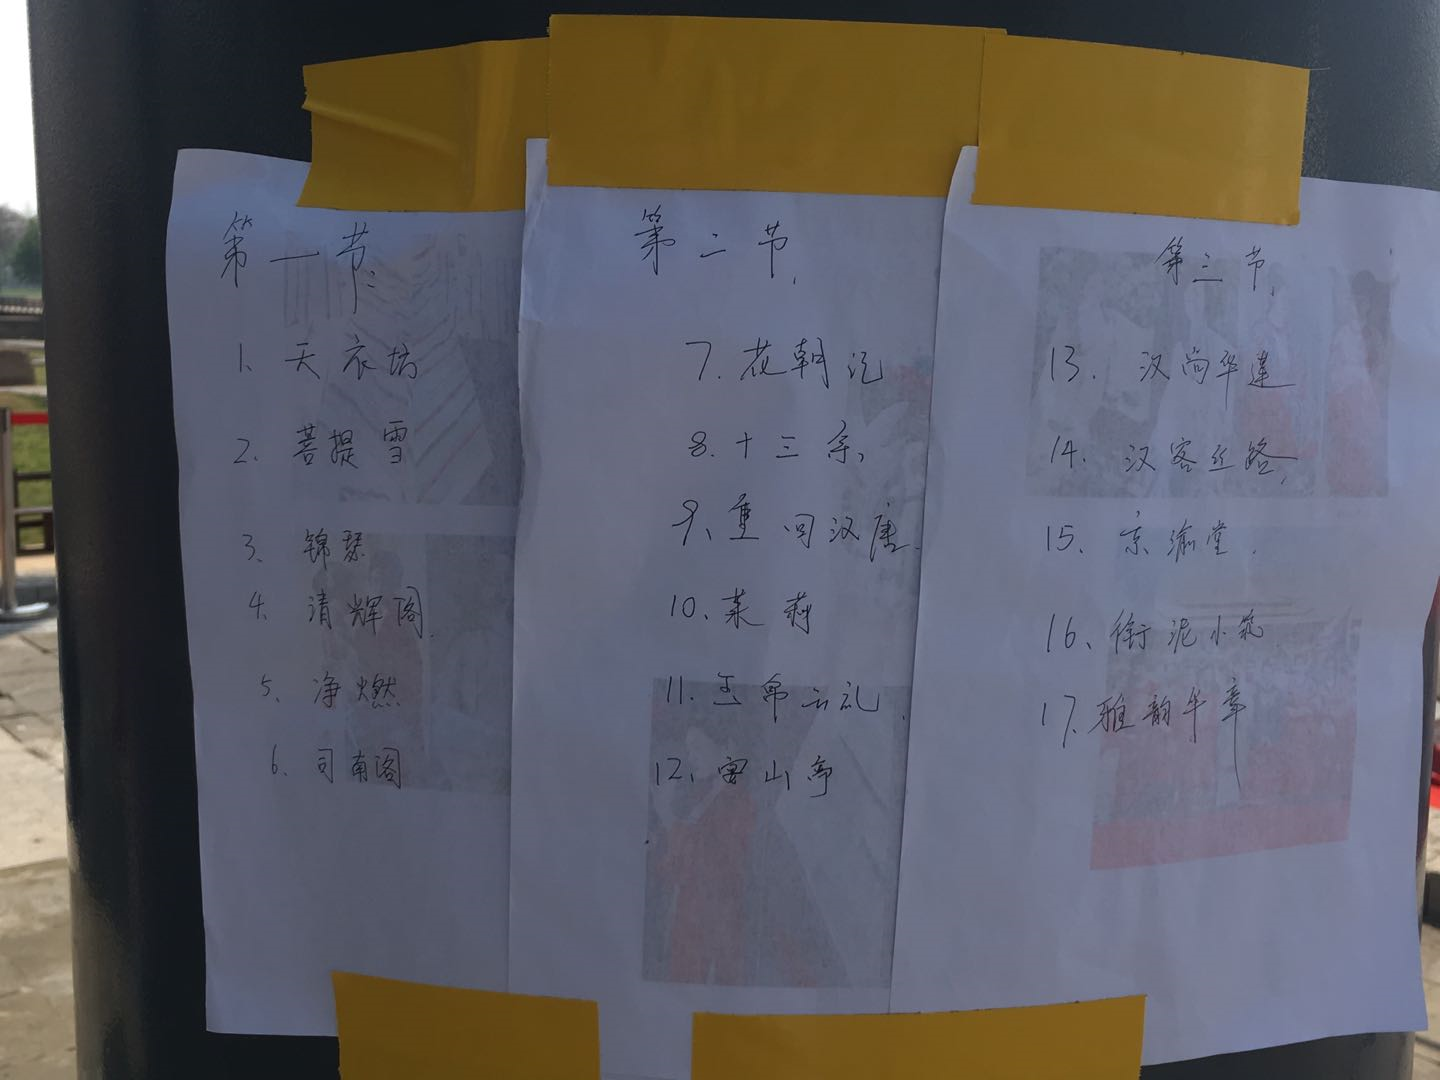 第一节:
1. 天衣坊
2. 菩提雪
3、锦瑟
4. 清辉阁.
5、净燃
6、司南阁
第二节,
7. 花朝记
8. 十三余,
9、重回汉唐.
10、茉莉
11、玉帛云礼.
12、寒山亭
第三节,
13. 汉尚华莲
14. 汉客丝路,
15、京渝堂.
16、衔泥小筑.
17. 雅韵华章